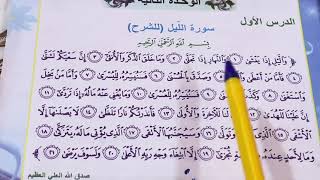 الوحدة الثانية
الدرس الأول
سورة الليل (للشرح)
بِسْمِ اللَّهِ الرَّحْمَٰنِ الرَّحِيمِ
﴿ وَٱلَّيْلِ إِذَا يَغْشَىٰ ١ وَٱلنَّهَارِ إِذَا تَجَلَّىٰ ٢ وَمَا خَلَقَ ٱلذَّكَرَ وَٱلْأُنثَىٰ ٣ إِنَّ سَعْيَكُمْ لَشَتَّىٰ
٤ فَأَمَّا مَنْ أَعْطَىٰ وَٱتَّقَىٰ ٥ وَصَدَّقَ بِٱلْحُسْنَىٰ ٦ فَسَنُيَسِّرُهُۥ لِلْيُسْرَىٰ ٧ وَأَمَّا مَنۢ بَخِلَ
وَٱسْتَغْنَىٰ ٨ وَكَذَّبَ بِٱلْحُسْنَىٰ ٩ فَسَنُيَسِّرُهُۥ لِلْعُسْرَىٰ ١٠ وَمَا يُغْنِى عَنْهُ مَالُهُۥٓ إِذَا تَرَدَّىٰ
١١ إِنَّ عَلَيْنَا لَلْهُدَىٰ ١٢ وَإِنَّ لَنَا لَلْـَٔاخِرَةَ وَٱلْأُولَىٰ ١٣ فَأَنذَرْتُكُمْ نَارًا تَلَظَّىٰ ١٤ لَا يَصْلَىٰهَآ إِلَّا
ٱلْأَشْقَى ١٥ ٱلَّذِى كَذَّبَ وَتَوَلَّىٰ ١٦ وَسَيُجَنَّبُهَا ٱلْأَتْقَى ١٧ ٱلَّذِى يُؤْتِى مَالَهُۥ يَتَزَكَّىٰ ١٨
وَمَا لِأَحَدٍ عِندَهُۥ مِن نِّعْمَةٍ تُجْزَىٰٓ ١٩ إِلَّا ٱبْتِغَآءَ وَجْهِ رَبِّهِ ٱلْأَعْلَىٰ ٢٠ وَلَسَوْفَ يَرْضَىٰ ٢١ ﴾
صدق الله العلي العظيم